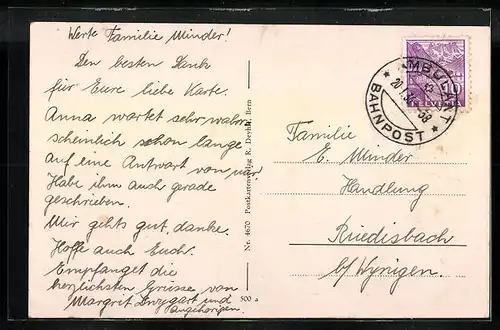 Werte Familie Minder!
Den besten Dank
für Eure liebe Karte.
Anna wartet sehr wahr-
scheinlich schon lange
auf eine Antwort von mir.
Habe ihm auch gerade
geschrieben.
Mir gehts gut, danke.
Hoffe auch Euch.
Empfanget die
herzlichsten Grüsse von
Margrit und
Angehörigen.
Nr. 4670 Postkartenverlag R. Bern
500 a
AMBULANT
20.
BAHNPOST
10
HELVETIA
Familie
E. Minder
Handlung
Riedisbach
b/ Wynigen.